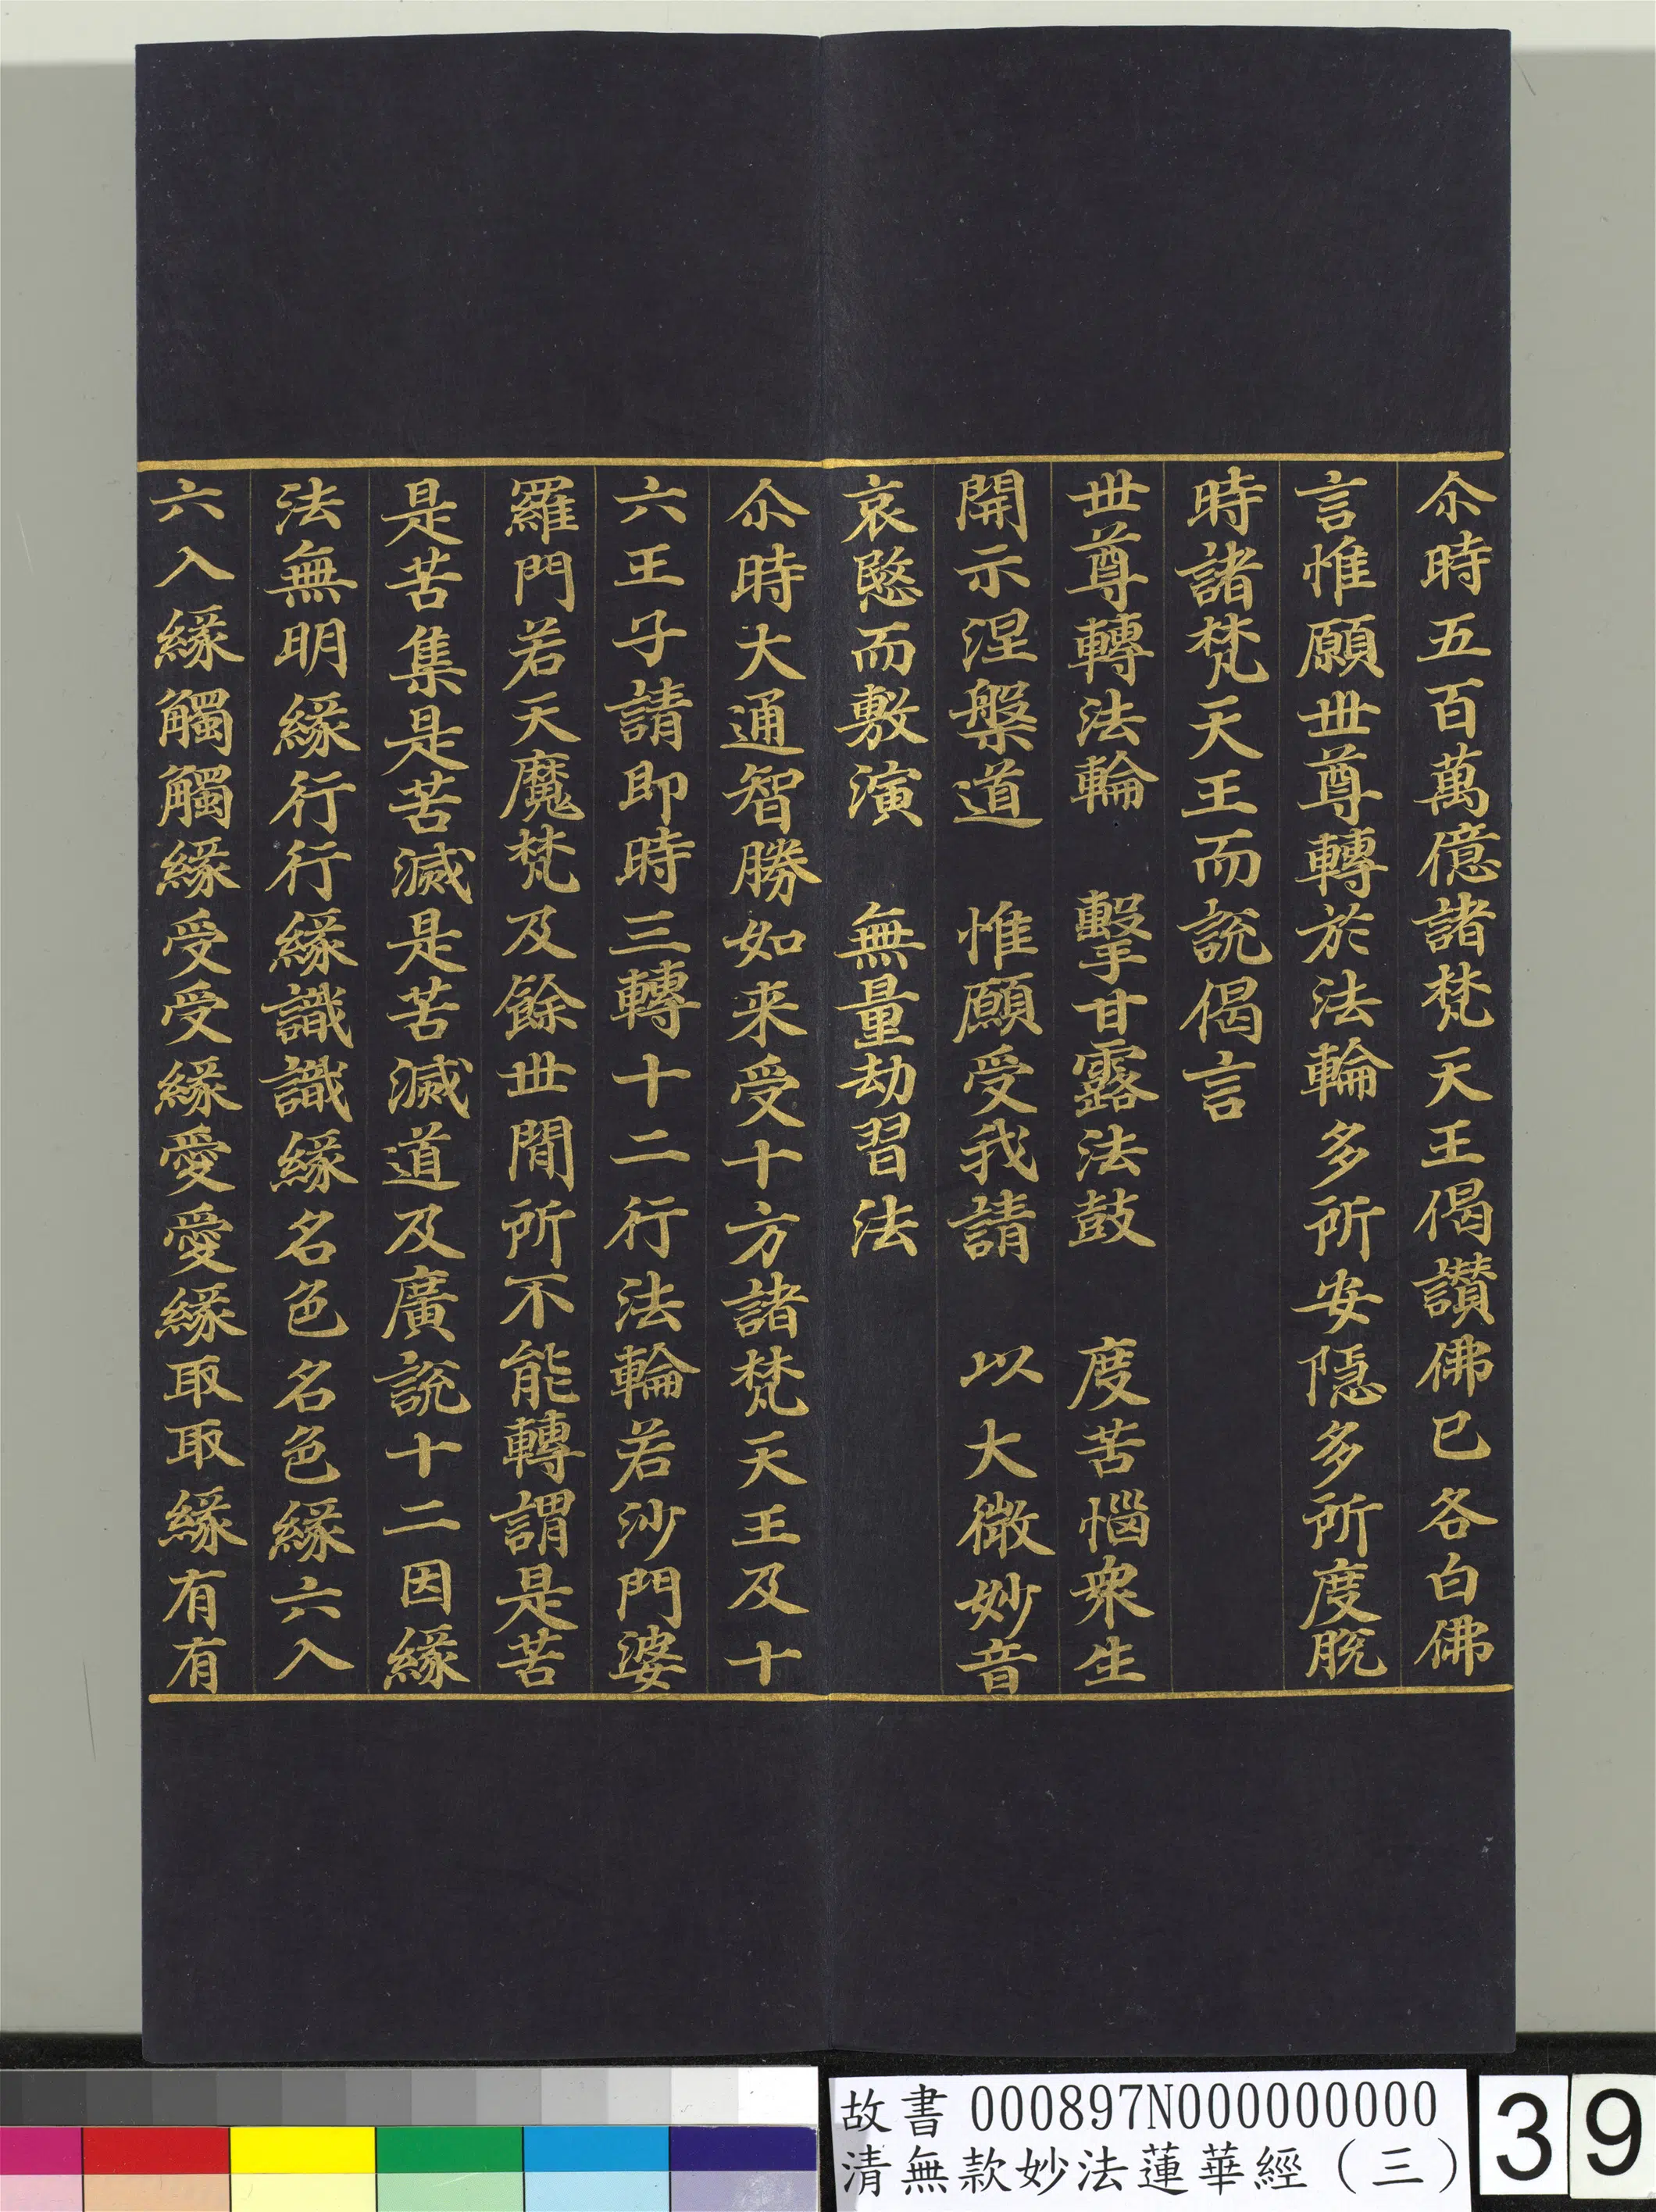 尒時五百萬億諸梵天王偈讃佛已各白佛
言惟願世尊轉於法輪多所安隱多所度脫
時諸梵天王而說偈言
世尊轉法輪　擊甘露法鼓　度苦惱衆生
開示涅槃道　惟願受我請　以大微妙音
哀愍而敷演　無量劫習法
尒時大通智勝如来受十方諸梵天王及十
六王子請即時三轉十二行法輪若沙門婆
羅門若天魔梵及餘世閒所不能轉謂是苦
是苦集是苦滅是苦滅道及廣說十二因緣
法無明緣行行緣識識緣名色名色緣六入
六入緣觸觸緣受受緣愛愛緣取取緣有有
故書 000897N000000000
清無款妙法蓮華經（三）
39